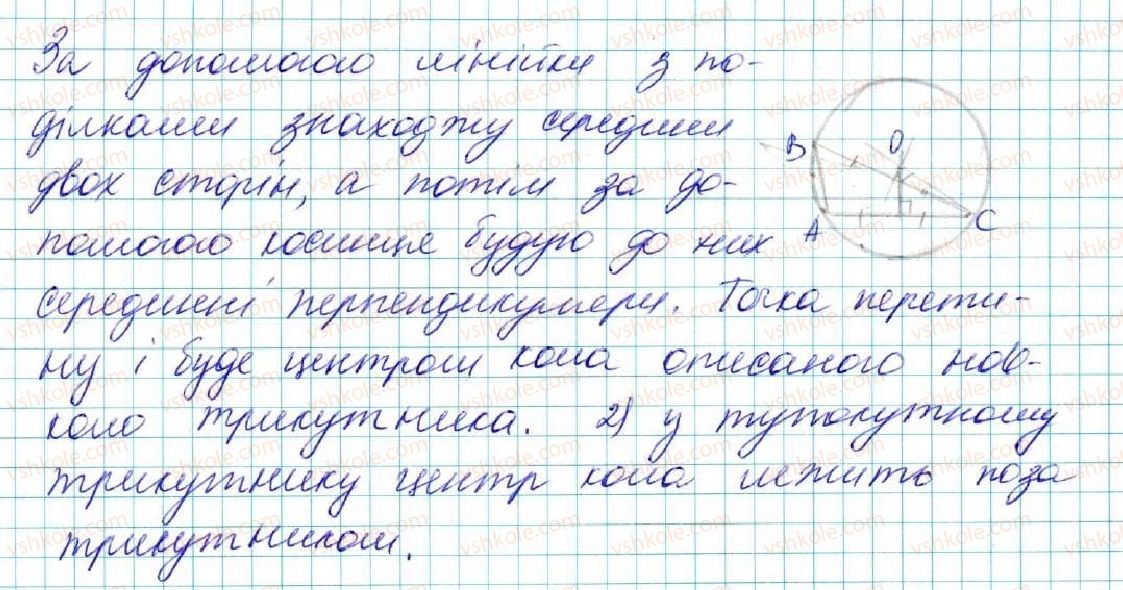 За допомогою лінійки з по-
ділками знаходжу середини
двох сторін, а потім за до-
помогою косинця будую до них
серединні перпендикуляри. Точка перети-
ну і буде центром кола описаного нав-
коло трикутника. 2) у тупокутному
трикутнику центр кола лежить поза
трикутником.
B
O
A
C
vshkole.com